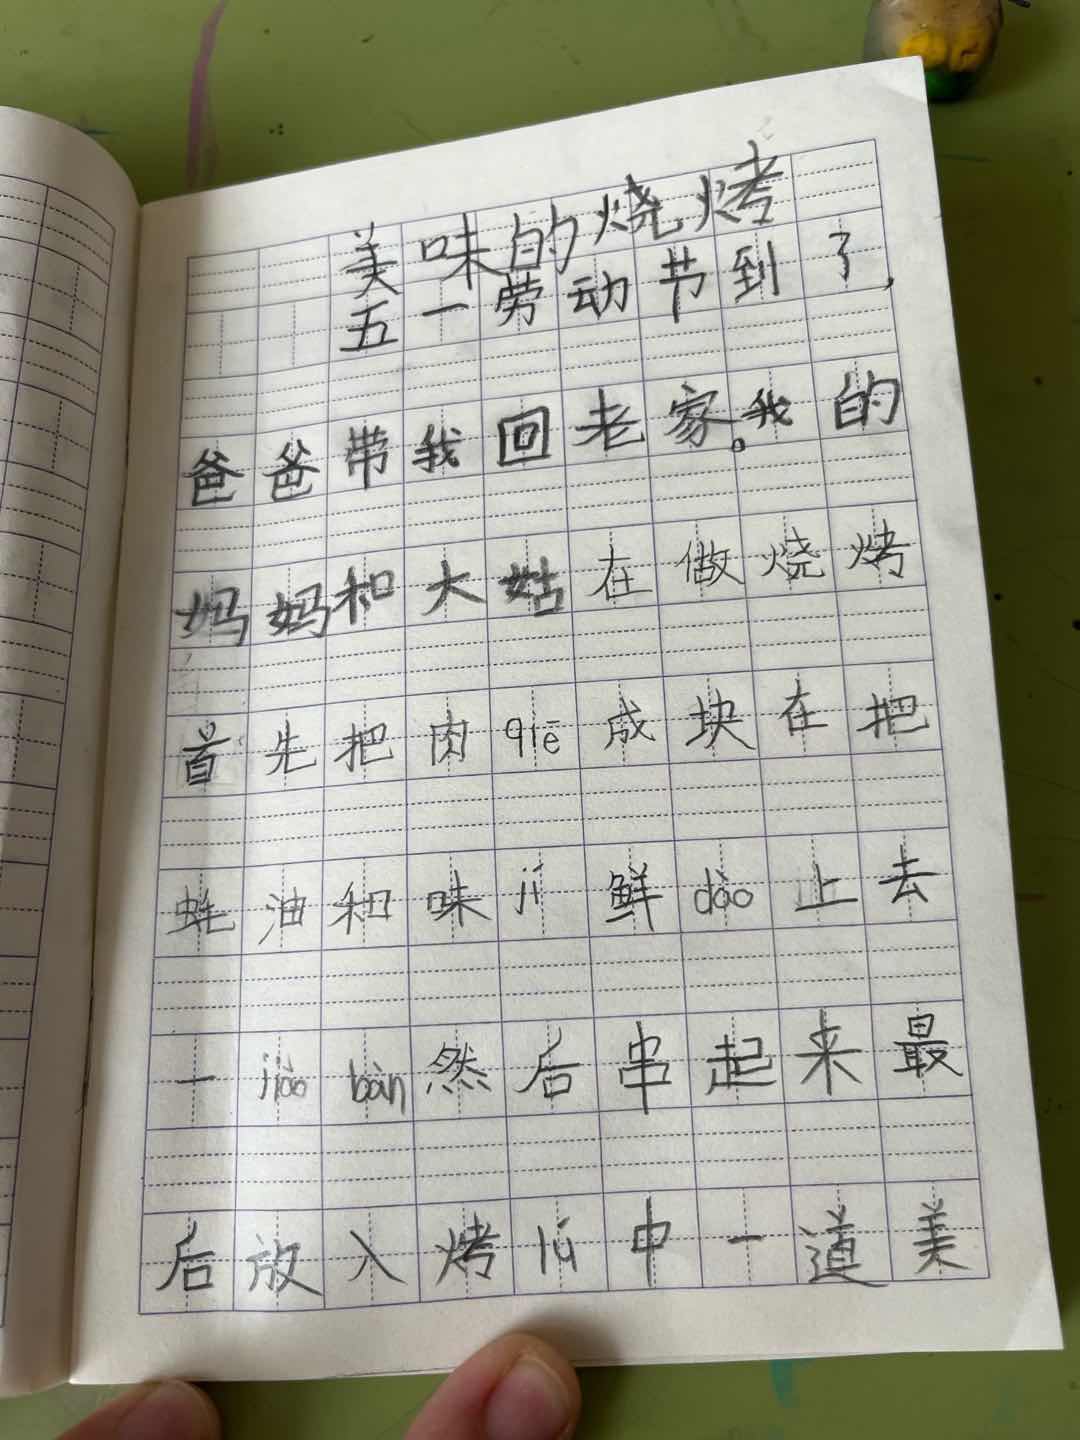 美味的烧烤
五一劳动节到了，
爸爸带我回老家。我的
妈妈和大姑在做烧烤
首先把肉qiē成块在把
蚝油和味jí鲜dào上去
一jiǎo bàn然后串起来最
后放入烤lú中一道美